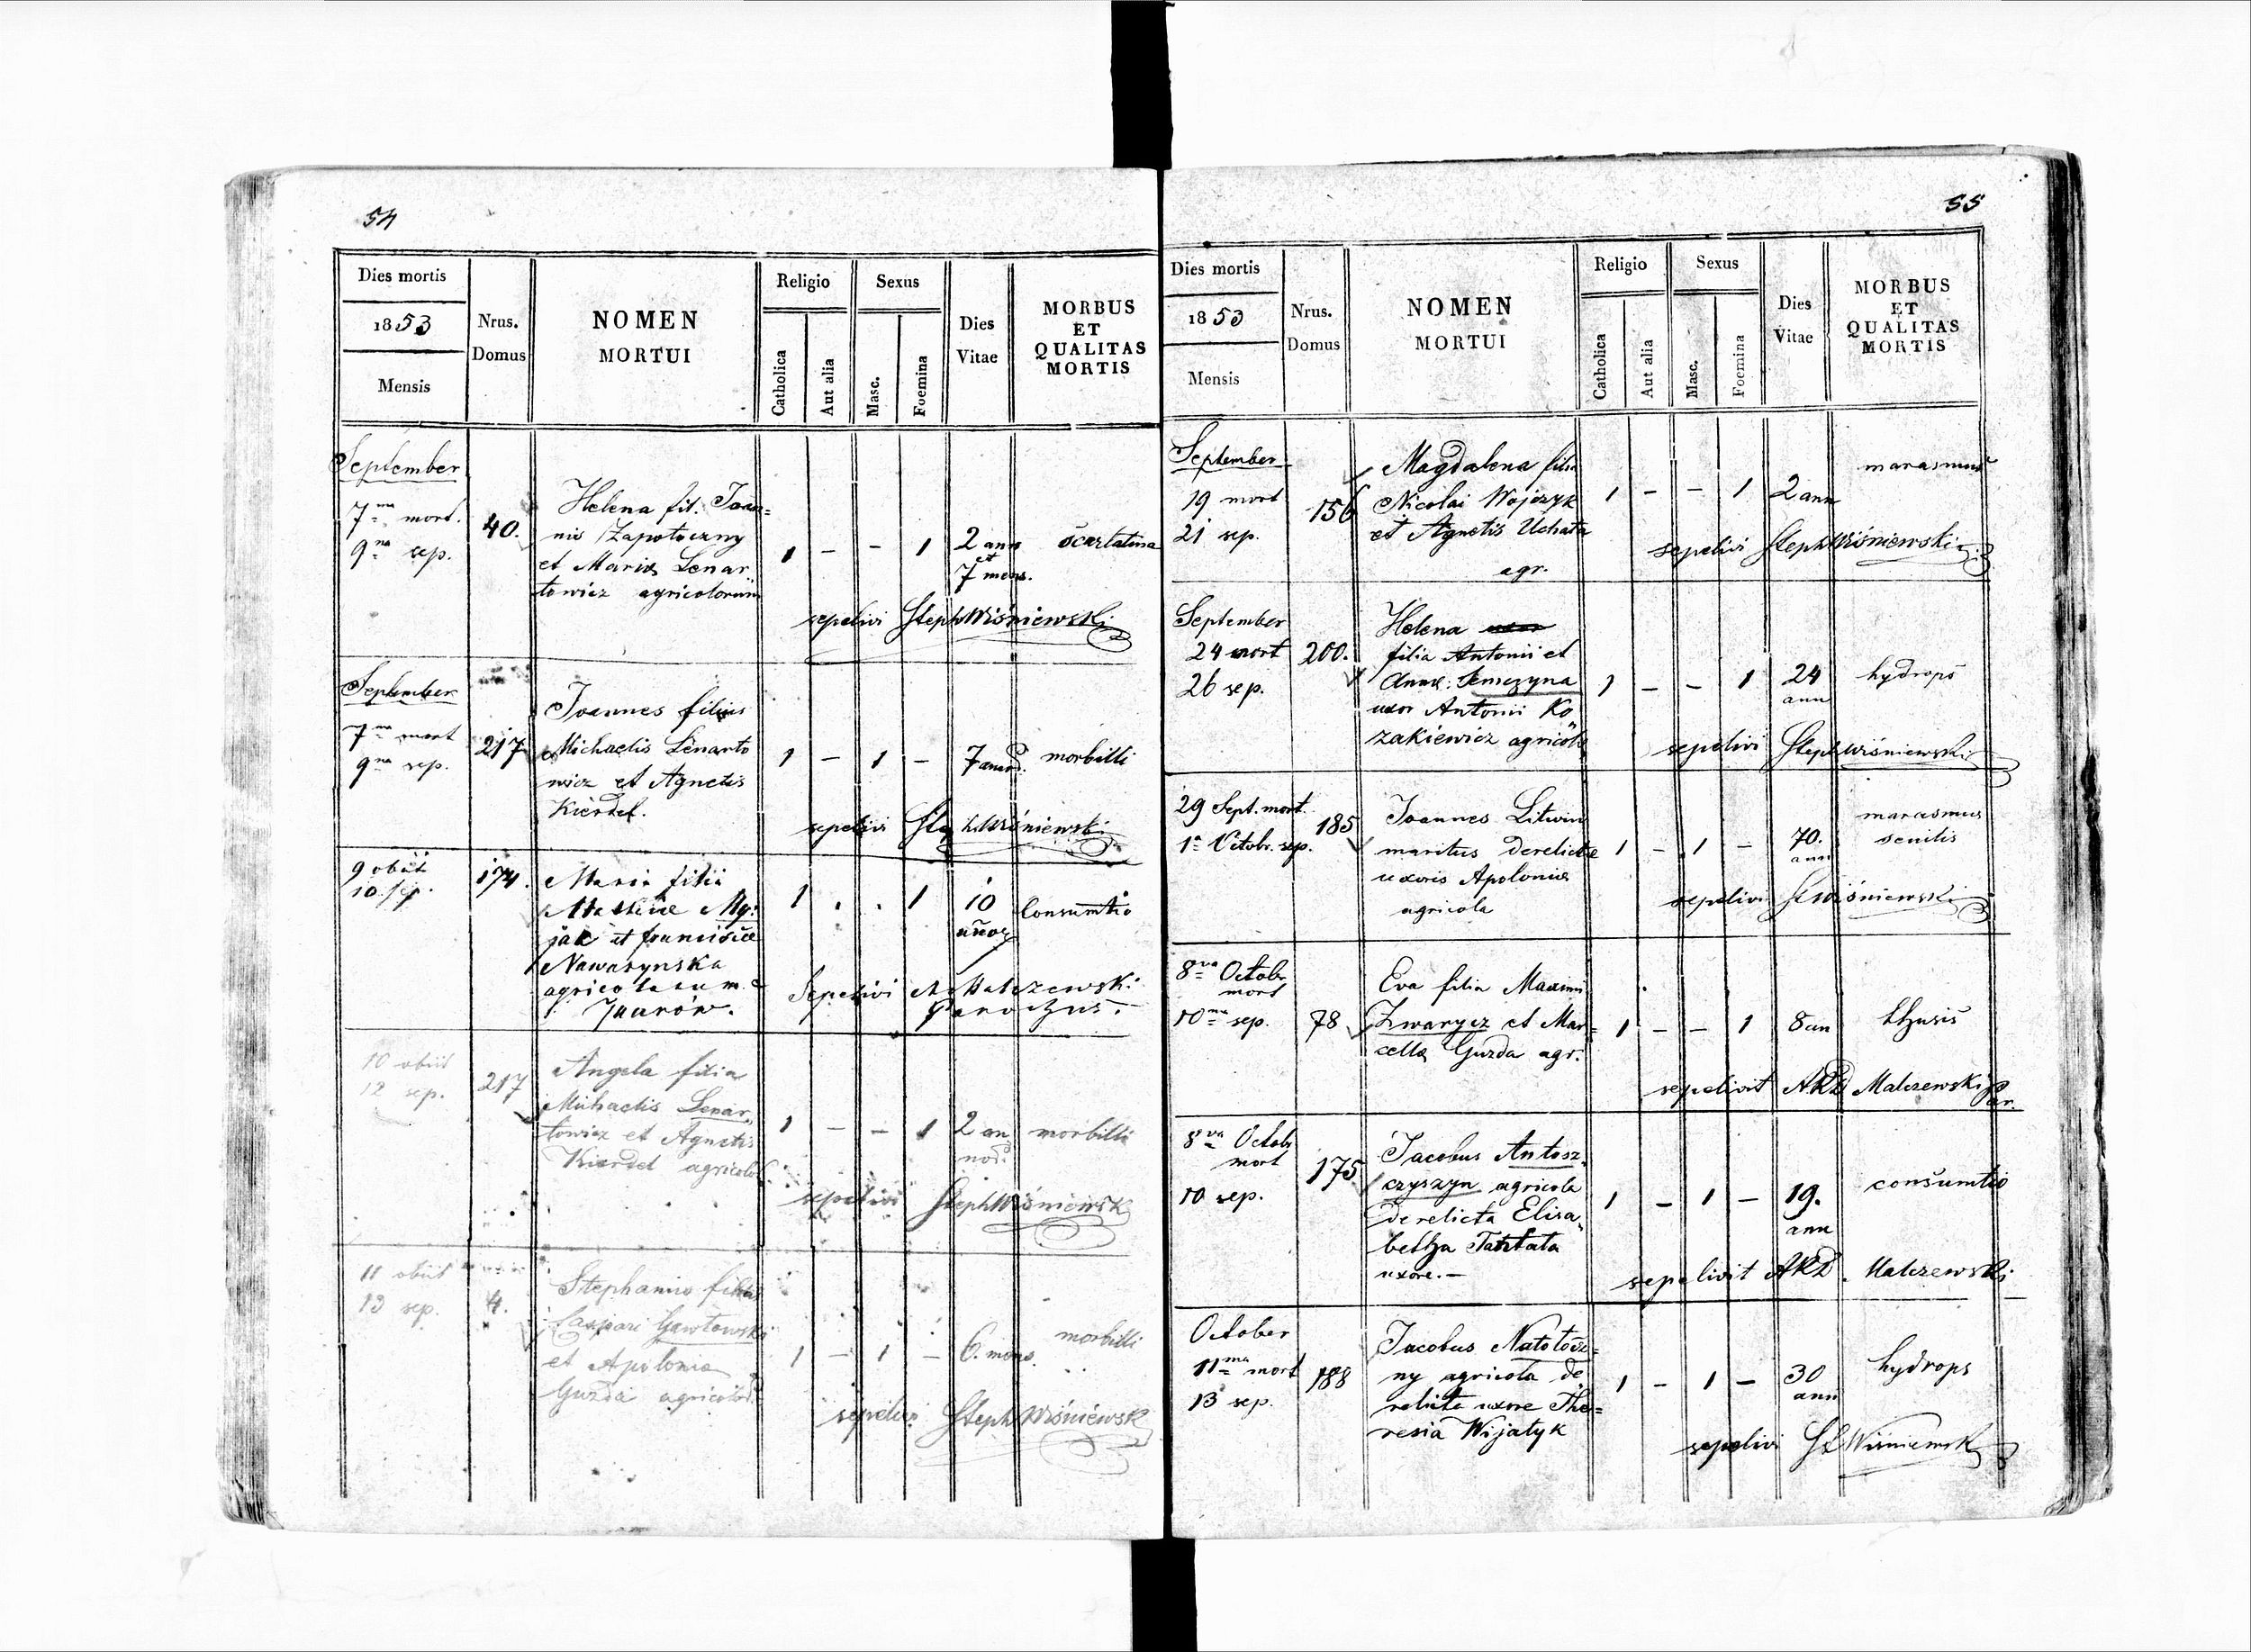 54
Dies mortis
1853
Mensis
Nrus.
Domus
NOMEN
MORTUI
Religio
Catholica
Aut alia
Sexus
Masc.
Foemina
Dies
Vitae
MORBUS
ET
QUALITAS
MORTIS
September
7ma mort.
9na sep.
40.
Helena fil. Joan=
nis Zapotoczny
et Maria Lenar
towicz agricolorum
1 - - 1
2 ann
et
7 mens.
scarlatina
sepelivi Steph Wiśniewski
September
7ma mort
9na sep.
217
Joannes filius
Michaelis Lenarto
wicz et Agnetis
Kierdel.
1 - 1 -
7
morbilli
sepelivi Steph Wiśniewski
9 obiit
10 sep.
174.
Maria filia
jak et francisce
Nawarynska
agricolarum
1 . . 1
10
Consumtio
Sepelivi Malczewski
Parochus.
10 obiit
12 sep.
217
Angela filia
Michaelis Lenar
towicz et Agnetis
Kierdel agricol
1 - - 1
2 an
morbilli
sepelivi Steph Wiśniewsk
11 obiit
13 sep.
4.
Stephanus filius
Caspari Gawtowski
et Apolonia
Guzda agricolar
1 - 1 -
6. mens.
morbilli
sepelivi Steph Wiśniewsk
55
Dies mortis
1853
Mensis
Nrus.
Domus
NOMEN
MORTUI
Religio
Catholica
Aut alia
Sexus
Masc.
Foemina
Dies
Vitae
MORBUS
ET
QUALITAS
MORTIS
September
19 mort
21 sep.
156
Magdalena filia
Nicolai Wojczyk
et Agnetis Uchata
agr.
1 - - 1
2 ann
marasmus
sepelivi Steph Wiśniewski
September
24 mort
26 sep.
200.
Helena
filia Antonii et
Annae Semczyna
uxor Antonii Ko
zakiewicz agricola
1 - - 1
24
ann
hydrops
sepelivi Steph Wiśniewski
29 Sept. mort.
1a Octobr. sep.
185
Joannes Litwin
maritus derelictae
uxoris Apolonia
agricola
1 - 1 -
70.
ann
marasmus
senilis
sepelivi St Wiśniewski
8va Octobr
mort
10ma sep.
78
Eva filia Maximi
Zwarycz et Mar=
cella Guzda agr.
1 - - 1
8 an
sepelivit ARD Malczewski par.
8va Octobr
mort
10 sep.
175
Jacobus Antosz
czyszyn agricola
derelicta Elisa
betha
uxore. -
1 - 1 -
19.
ann
consumtio
sepelivit ARD. Malczewski
October
11ma mort
13 sep.
188
Jacobus Natotocz=
ny agricola de
relicta uxore The=
resia Wijatyk
1 - 1 -
30
ann
hydrops
sepelivi St Wiśniewsk